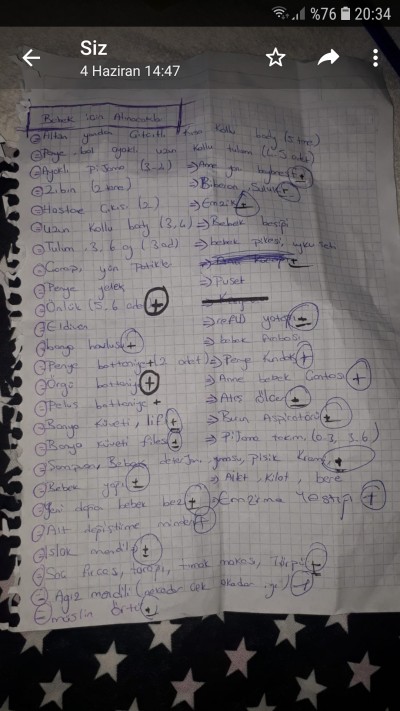 %76 20:34
Siz
4 Haziran 14:47
Bebek için Alınacak
Alttan yandan Çıtçıtlı kısa kollu body (5 tane)
Penye bol ayaklı uzun kollu tulum (4-5 adet)
Ayaklı Pijama (3-4) → Anne yanı
Zıbın (2 tane) → Biberon, Suluk +
Hastane Çıkışı (2) → Emzik +
Uzun kollu body (3, 4) → Bebek beşiği
Tulum, 3, 6 ay (3 ad) → bebek pikesi, uyku seti
Çorap, yün Patikler
Penye yelek → Puset
Önlük (5, 6 adet) +
Eldiven → Park yatak +
banyo havlusu + → bebek
Penye battaniye (2 adet) → Penye Kundak +
Örgü battaniye + → Anne bebek Çantası +
Peluş battaniye + → Ateş ölçer +
Banyo Küveti, lif + → Burun Aspiratörü +
Banyo Küveti filesi + → Pijama takım (0.3, 3.6)
Şampuan, Bebek deterjanı, Pişik Kremi +
Bebek yağı + → Atlet, Kilot, bere
Yeni doğan bebek bezi + → Emzirme Yastığı +
Alt değiştirme minderi +
Islak mendil +
Saç fırçası, tarağı, tırnak makası, Törpü +
Ağız mendili (nekadar çok okadar iyi) +
müslin Örtü +